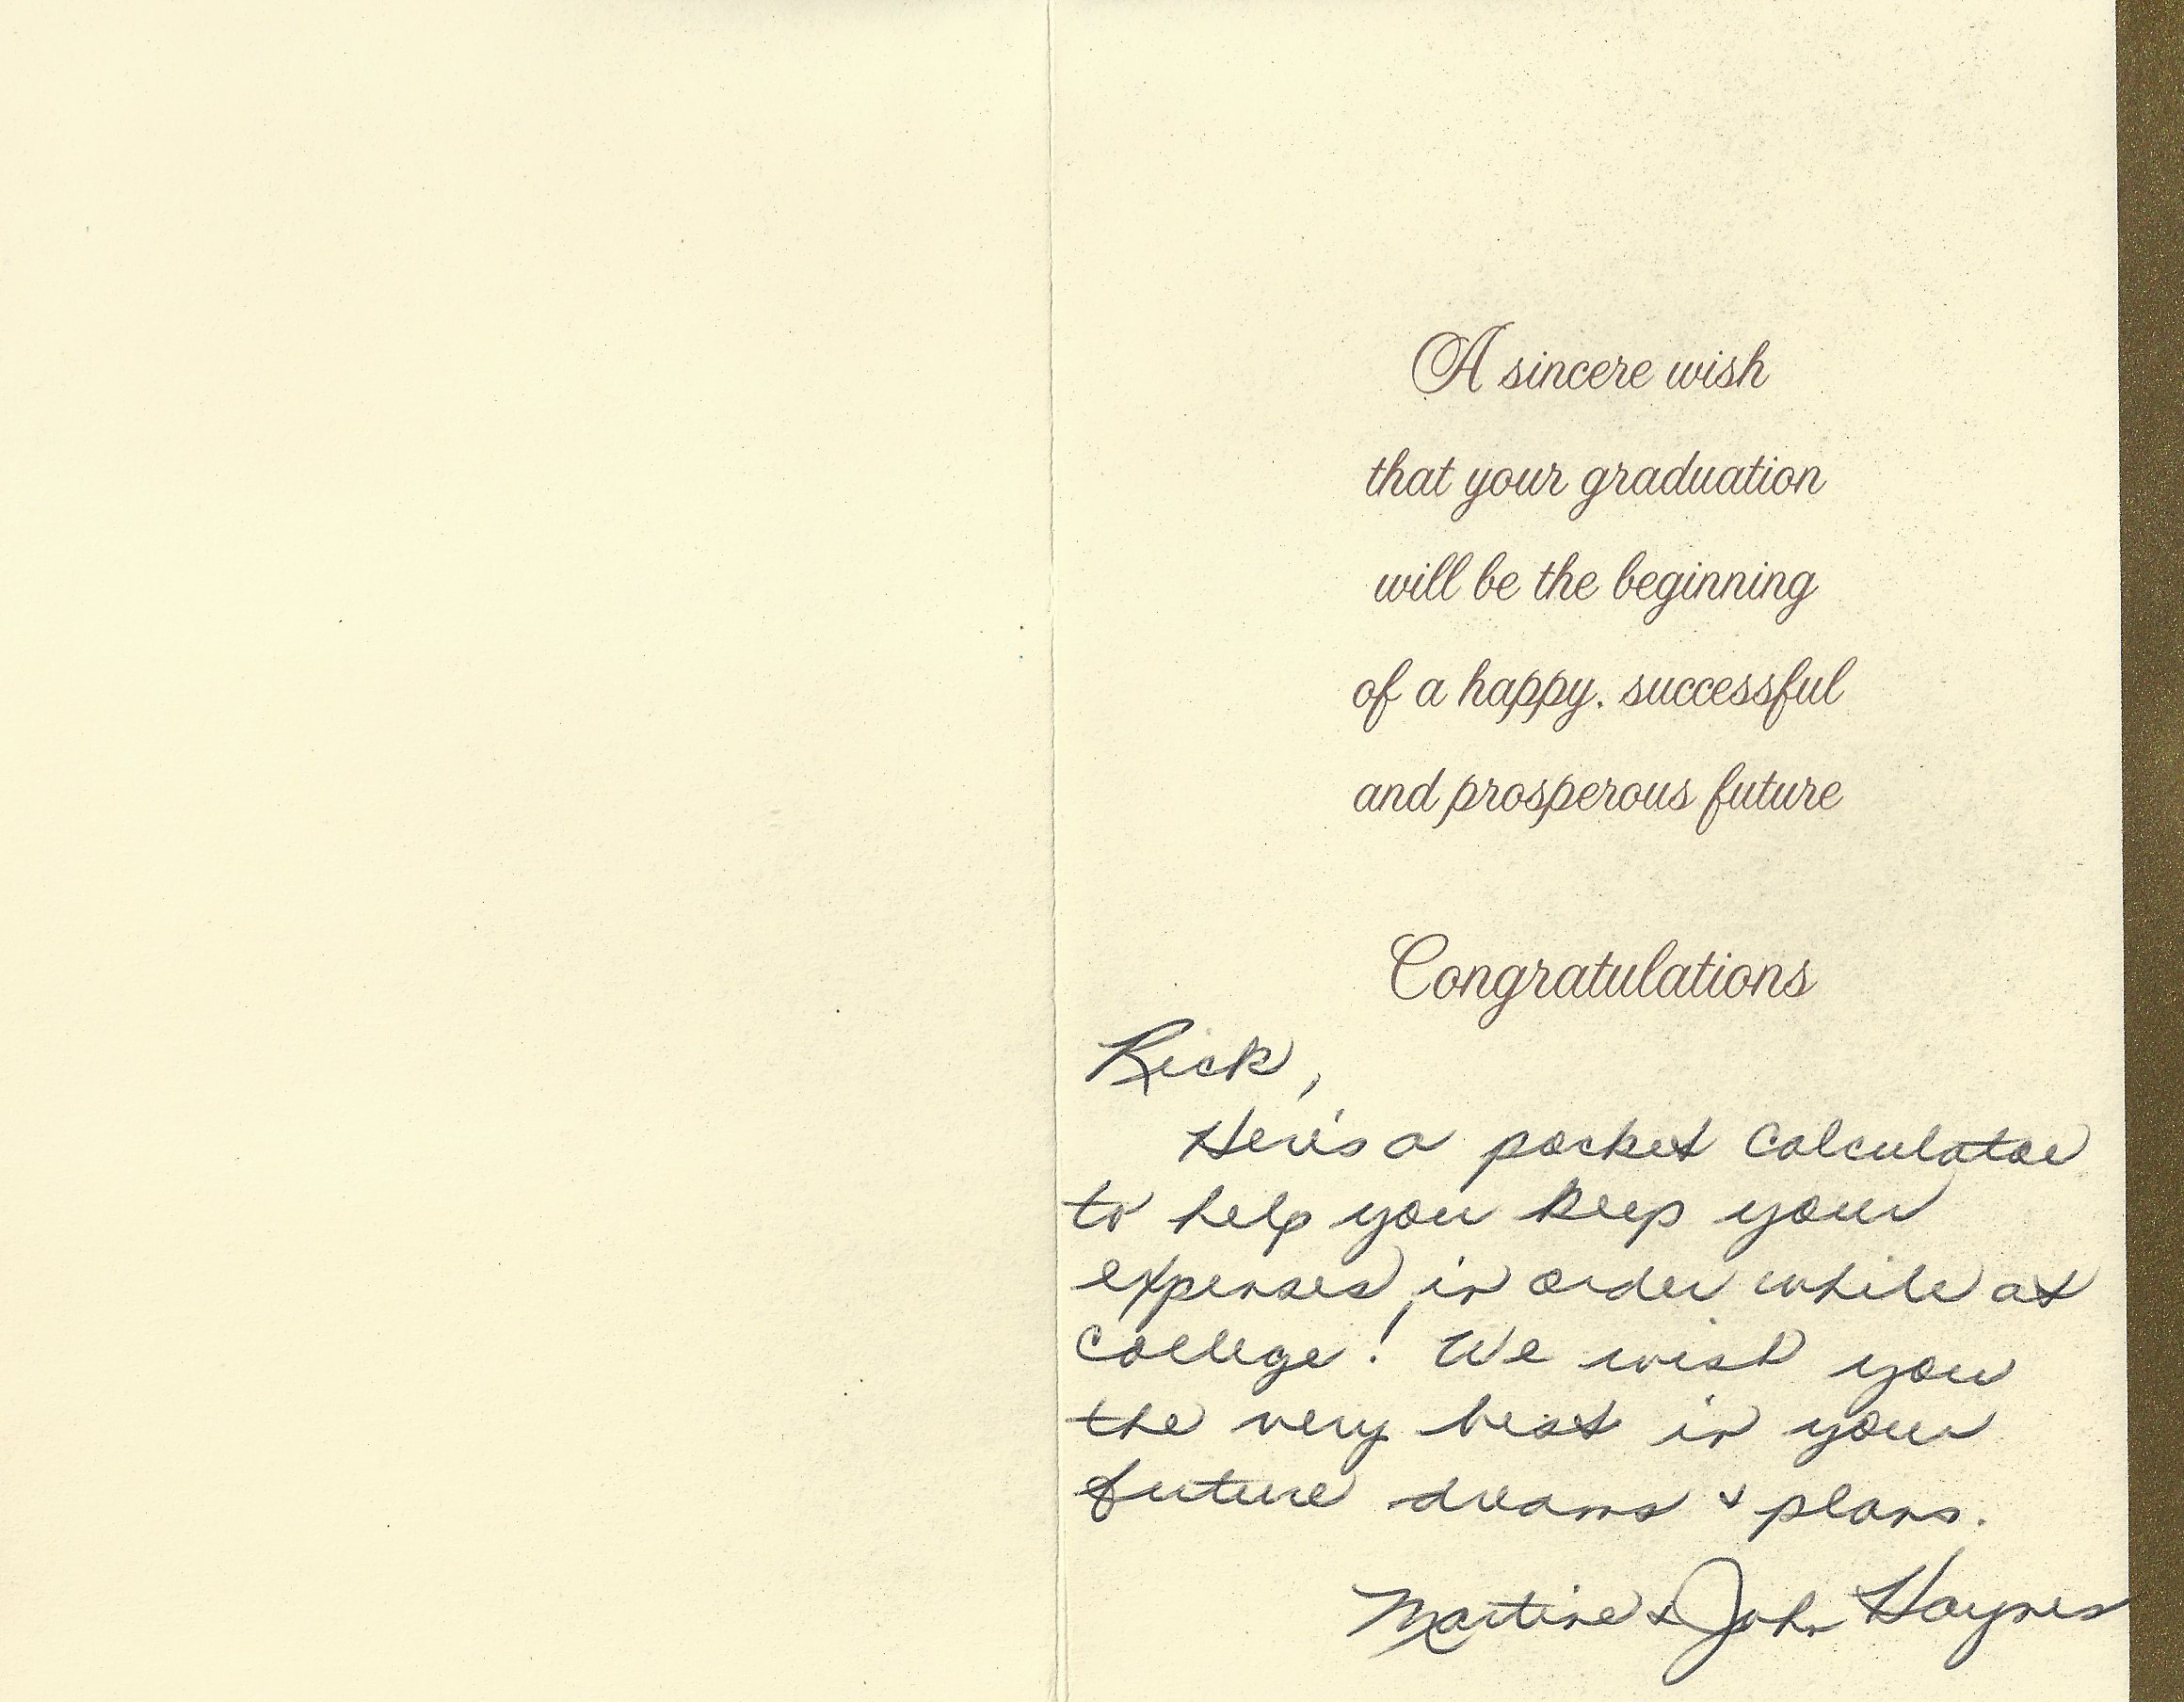 A sincere wish
that your graduation
will be the beginning
of a happy, successful
and prosperous future
Congratulations
Rick,
Here's a pocket calculator
to help you keep your
expenses in order while at
college! We wish you
the very best in your
future dreams & plans.
Martine & John Haynes